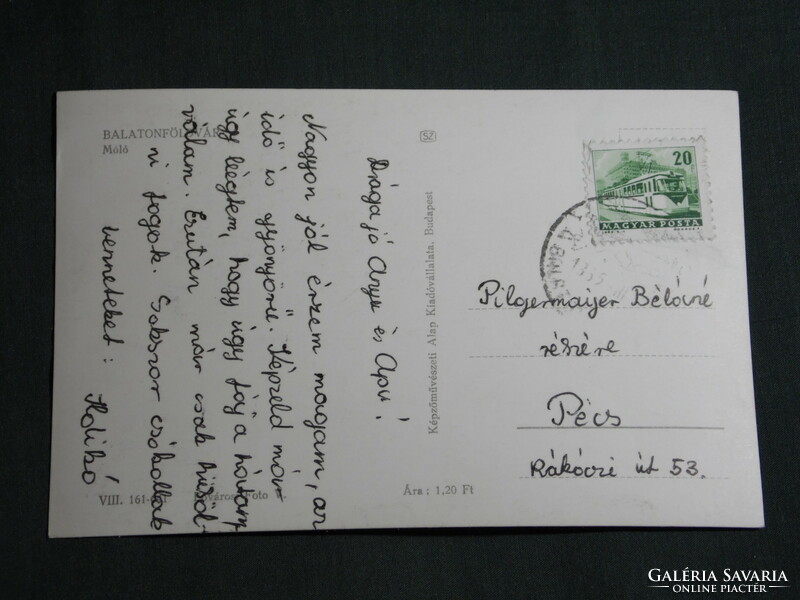 BALATONFÖLDVÁR
Móló
Drága jó Anyu és Apu!
Nagyon jól érzem magam, az
idő is gyönyörű. Képzeld már
úgy leégtem, hogy úgy fáj a hátam
vállam. Ezután már csak hűsöl-
ni fogok. Sokszor csókollak
benneteket:
Kolibó
VIII. 161
Fővárosi Fotó
SZ
Képzőművészeti Alap Kiadóvállalata, Budapest
Ára: 1,20 Ft
20
MAGYAR POSTA
Pilgermaijer Béláné
részére
Pécs
Rákóczi út 53.
GALÉRIA SAVARIA
ONLINE PIACTÉR